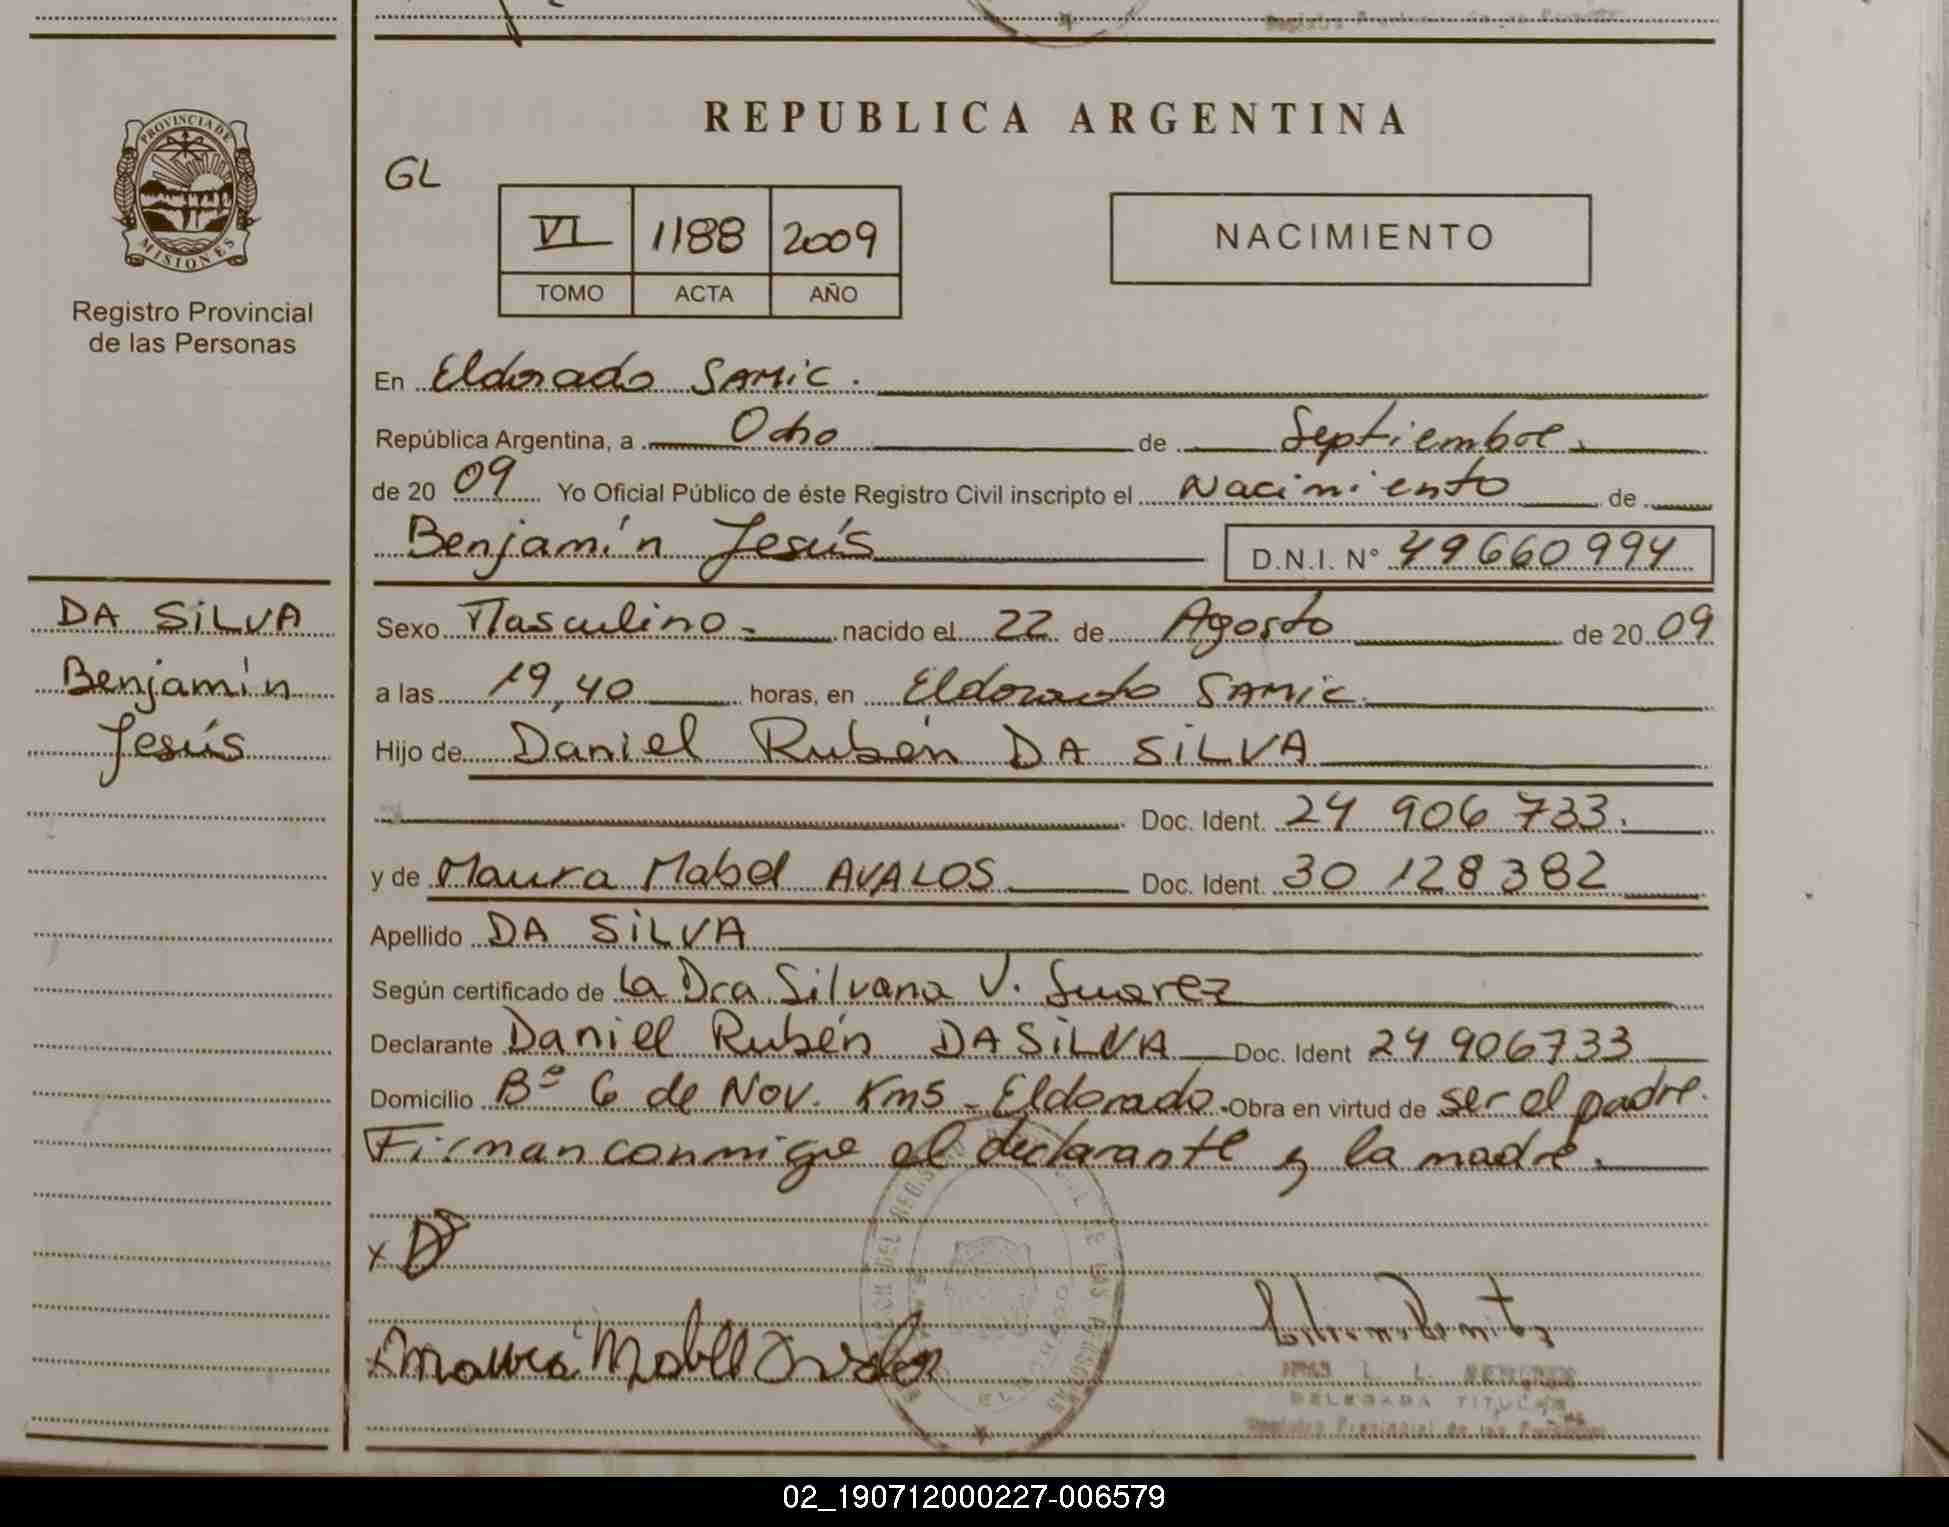 REPUBLICA ARGENTINA
PROVINCIA DE
MISIONES
Registro Provincial
de las Personas
GL
VI 1188 2009
TOMO ACTA AÑO
NACIMIENTO
En Eldorado SAMIC.
República Argentina, a Ocho de Septiembre.
de 20 09 Yo Oficial Público de éste Registro Civil inscripto el Nacimiento de
Benjamín Jesús D.N.I. N° 49660994
DA SILVA
Benjamín
Jesús
Sexo Masculino.- nacido el 22 de Agosto de 20 09
a las 19,40 horas, en Eldorado SAMIC.
Hijo de Daniel Rubén DA SILVA
Doc. Ident. 24 906 733.
y de Maura Mabel AVALOS Doc. Ident. 30 128 382
Apellido DA SILVA
Según certificado de La Dra Silvana V. Suarez
Declarante Daniel Rubén DA SILVA Doc. Ident 24 906733
Domicilio Bº 6 de Nov. Km5 - Eldorado. Obra en virtud de ser el padre.
Firman conmigo el declarante y la madre.
x
x Maura Mabel Avalos
DELEGADA TITULAR
Registro Provincial de las Personas
02_190712000227-006579